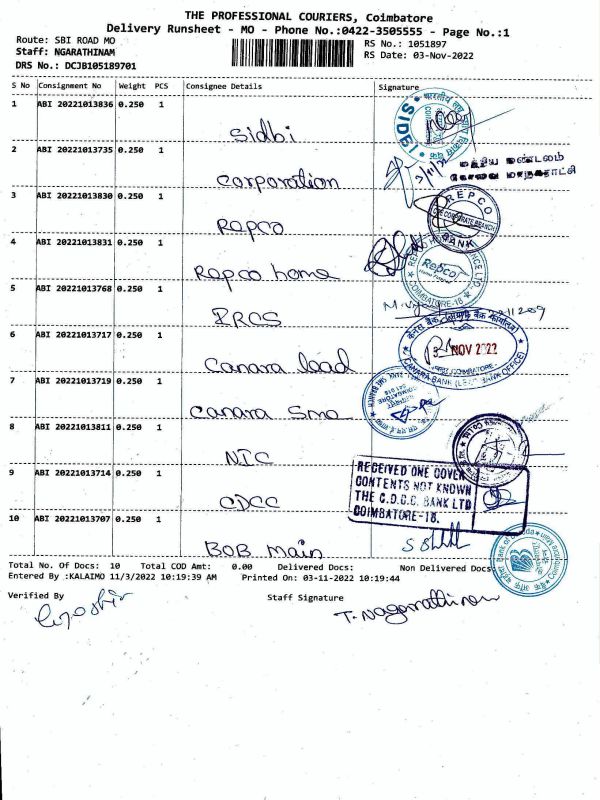 THE PROFESSIONAL COURIERS, Coimbatore
Delivery Runsheet - MO - Phone No.:0422-3505555 - Page No.:1
Route: SBI ROAD MO
RS No.: 1051897
Staff: NGARATHINAM
RS Date: 03-Nov-2022
DRS No.: DCJB105189701
S No Consignment No Weight PCS Consignee Details Signature
1 ABI 20221013836 0.250 1 Sidbi
SIDBI
2 ABI 20221013735 0.250 1 Corporation
3/11/22
மத்திய மண்டலம்
கோவை மாநகராட்சி
3 ABI 20221013830 0.250 1 Repco
REPCO BANK
THE CORPORATE BRANCH
4 ABI 20221013831 0.250 1 Repco home
Repco
Home Finance
COIMBATORE-18
5 ABI 20221013768 0.250 1 IRCS
6 ABI 20221013717 0.250 1 Canara lead
3 NOV 2022
COIMBATORE
CANARA BANK (LEAD BANK OFFICE)
7 ABI 20221013719 0.250 1 Canara Sme
8 ABI 20221013811 0.250 1 NIC
9 ABI 20221013714 0.250 1 CDCC
RECEIVED ONE COVER
CONTENTS NOT KNOWN
THE C.D.C.C. BANK LTD
COIMBATORE-18.
10 ABI 20221013707 0.250 1 BOB Main
Total No. Of Docs: 10 Total COD Amt: 0.00 Delivered Docs: Non Delivered Docs:
Entered By :KALAIMO 11/3/2022 10:19:39 AM Printed On: 03-11-2022 10:19:44
Verified By
Staff Signature
T. Nagarathinam